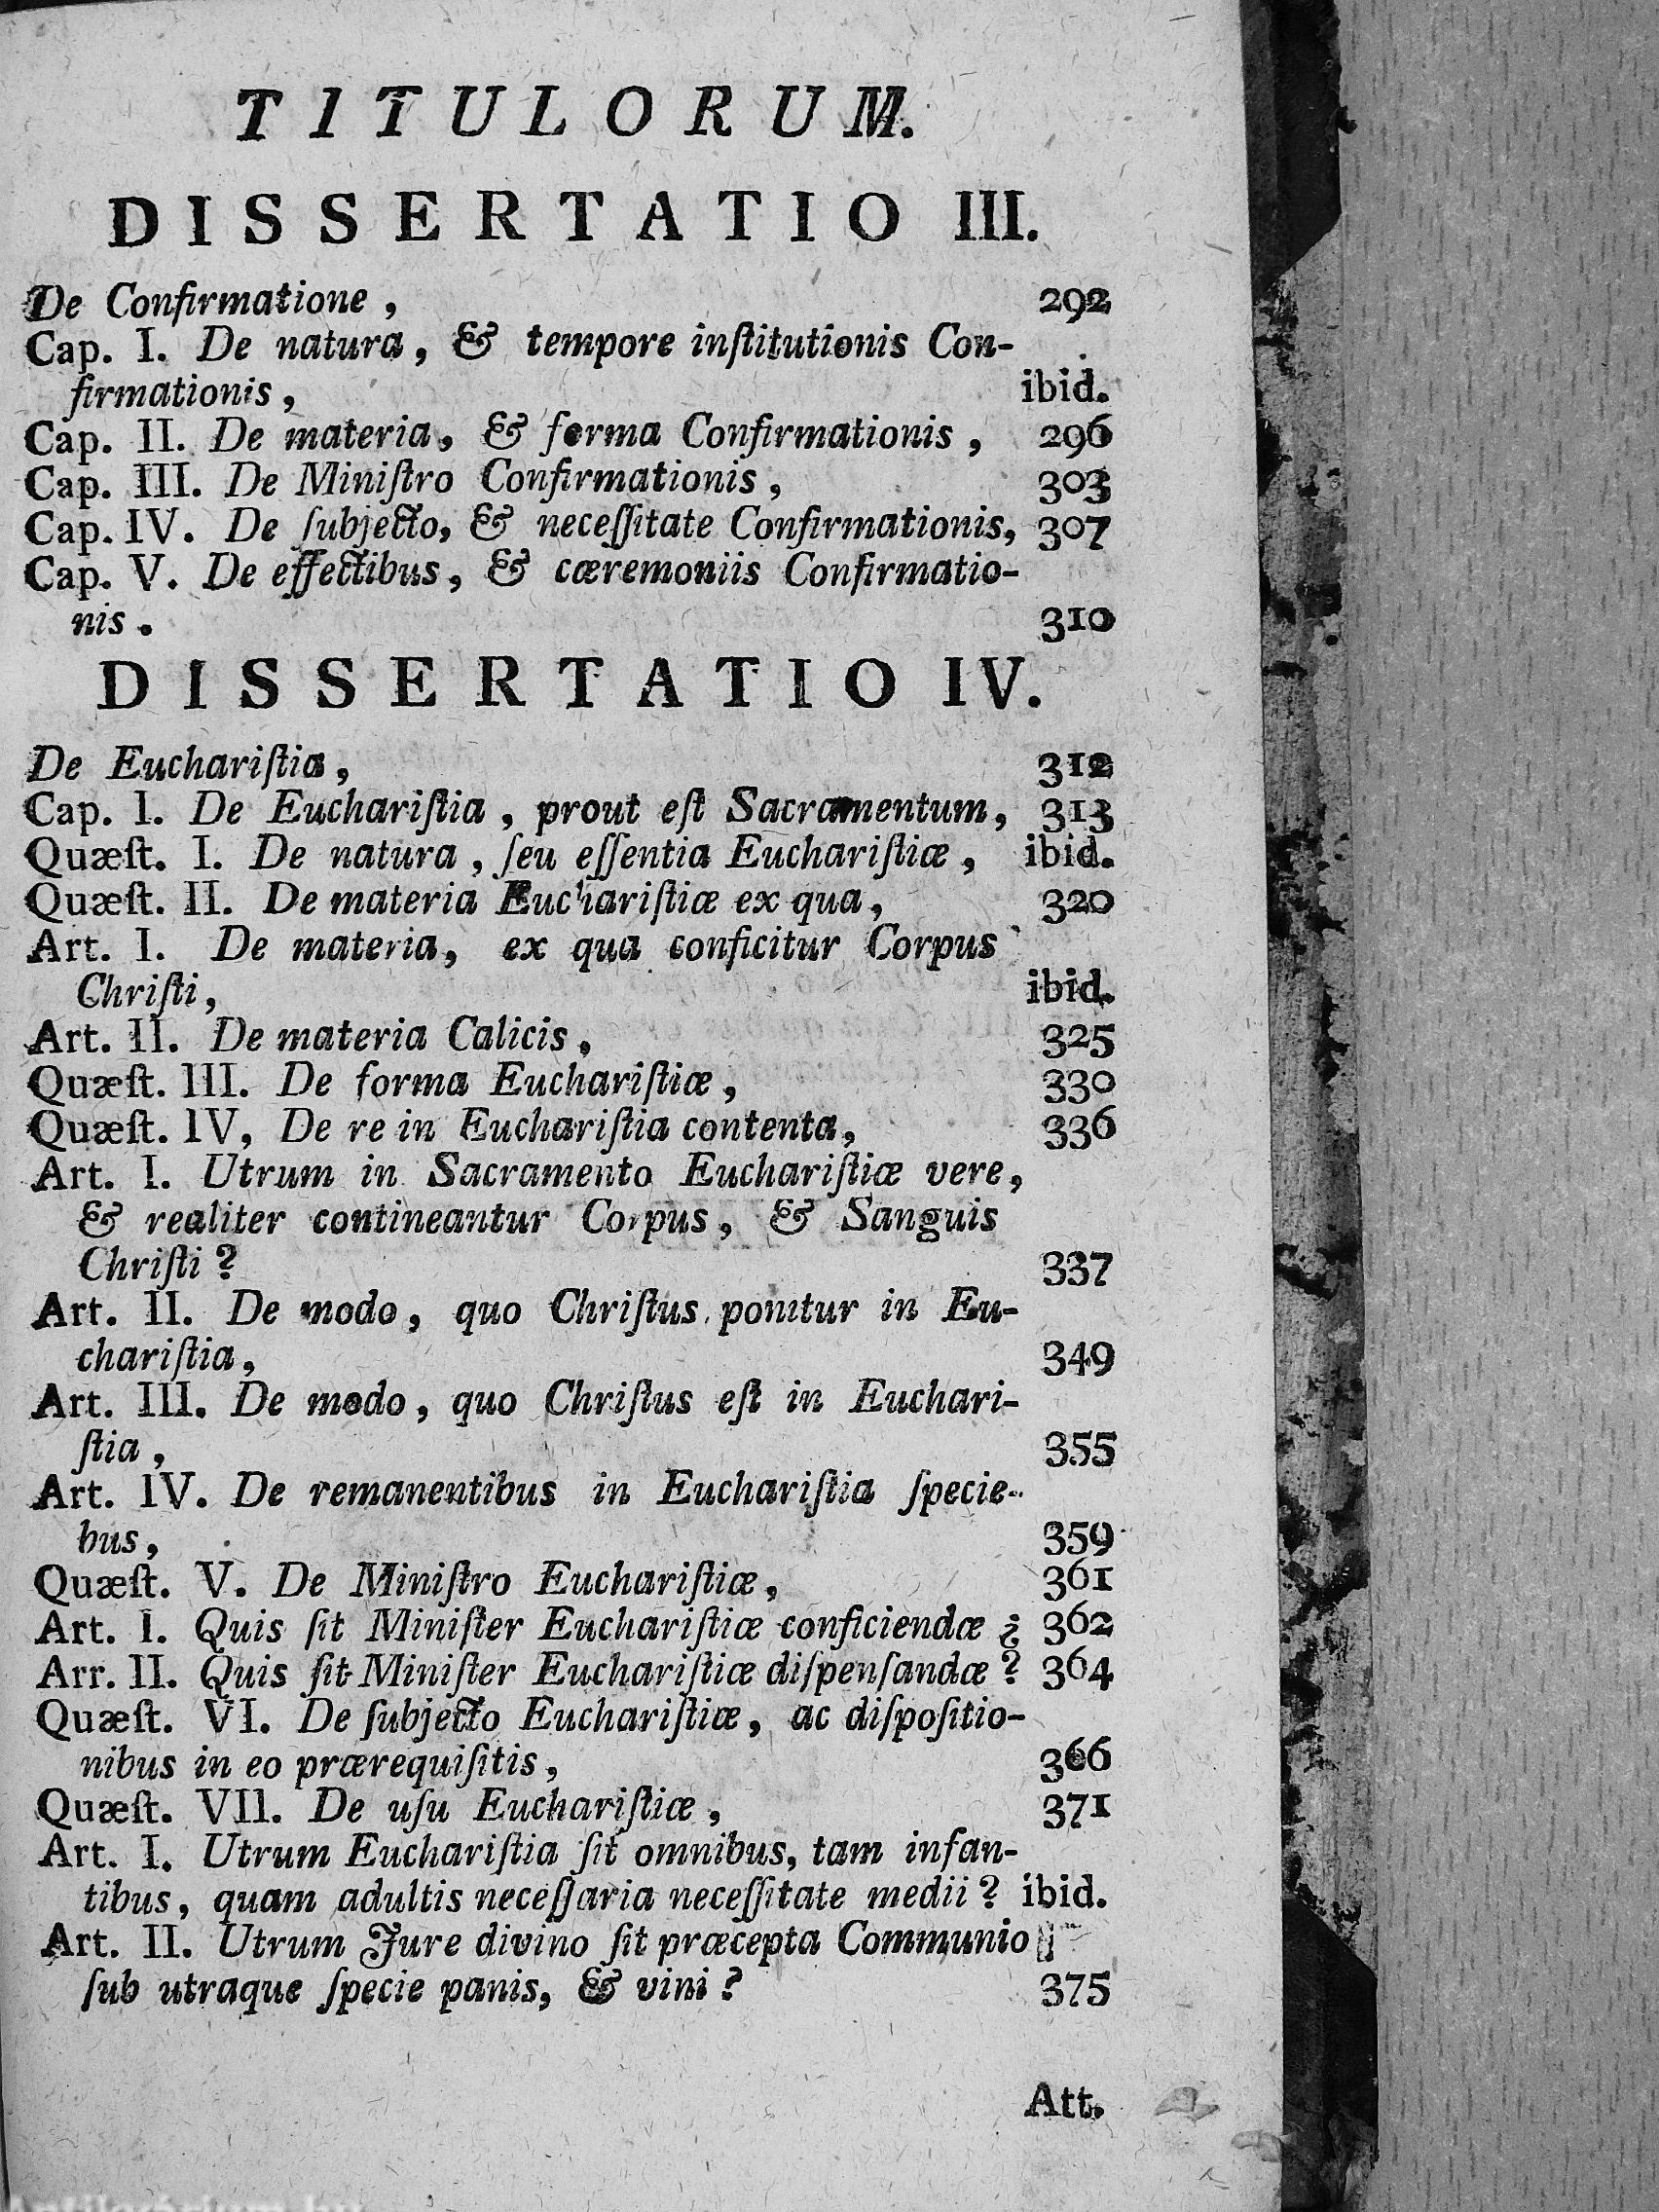 TITULORUM.
DISSERTATIO III.
De Confirmatione, 292
Cap. I. De natura, & tempore inſtitutionis Con-
firmationis, ibid.
Cap. II. De materia, & forma Confirmationis, 296
Cap. III. De Miniſtro Confirmationis, 303
Cap. IV. De ſubjecto, & neceſſitate Confirmationis, 307
Cap. V. De effectibus, & cæremoniis Confirmatio-
nis. 310
DISSERTATIO IV.
De Euchariſtia, 312
Cap. I. De Euchariſtia, prout eſt Sacramentum, 313
Quæſt. I. De natura, ſeu eſſentia Euchariſtiæ, ibid.
Quæſt. II. De materia Euchariſtiæ ex qua, 320
Art. I. De materia, ex qua conficitur Corpus
Chriſti, ibid.
Art. II. De materia Calicis, 325
Quæſt. III. De forma Euchariſtiæ, 330
Quæſt. IV, De re in Euchariſtia contenta, 336
Art. I. Utrum in Sacramento Euchariſtiæ vere,
& realiter contineantur Corpus, & Sanguis
Chriſti? 337
Art. II. De modo, quo Chriſtus ponitur in Eu-
chariſtia, 349
Art. III. De modo, quo Chriſtus eſt in Euchari-
ſtia, 355
Art. IV. De remanentibus in Euchariſtia ſpecie-
bus, 359
Quæſt. V. De Miniſtro Euchariſtiæ, 361
Art. I. Quis ſit Miniſter Euchariſtiæ conficiendæ ¿ 362
Arr. II. Quis ſit Miniſter Euchariſtiæ diſpenſandæ? 364
Quæſt. VI. De ſubjecto Euchariſtiæ, ac diſpoſitio-
nibus in eo prærequiſitis, 366
Quæſt. VII. De uſu Euchariſtiæ, 371
Art. I. Utrum Euchariſtia ſit omnibus, tam infan-
tibus, quam adultis neceſſaria neceſſitate medii? ibid.
Art. II. Utrum Jure divino ſit præcepta Communio
ſub utraque ſpecie panis, & vini? 375
Att.